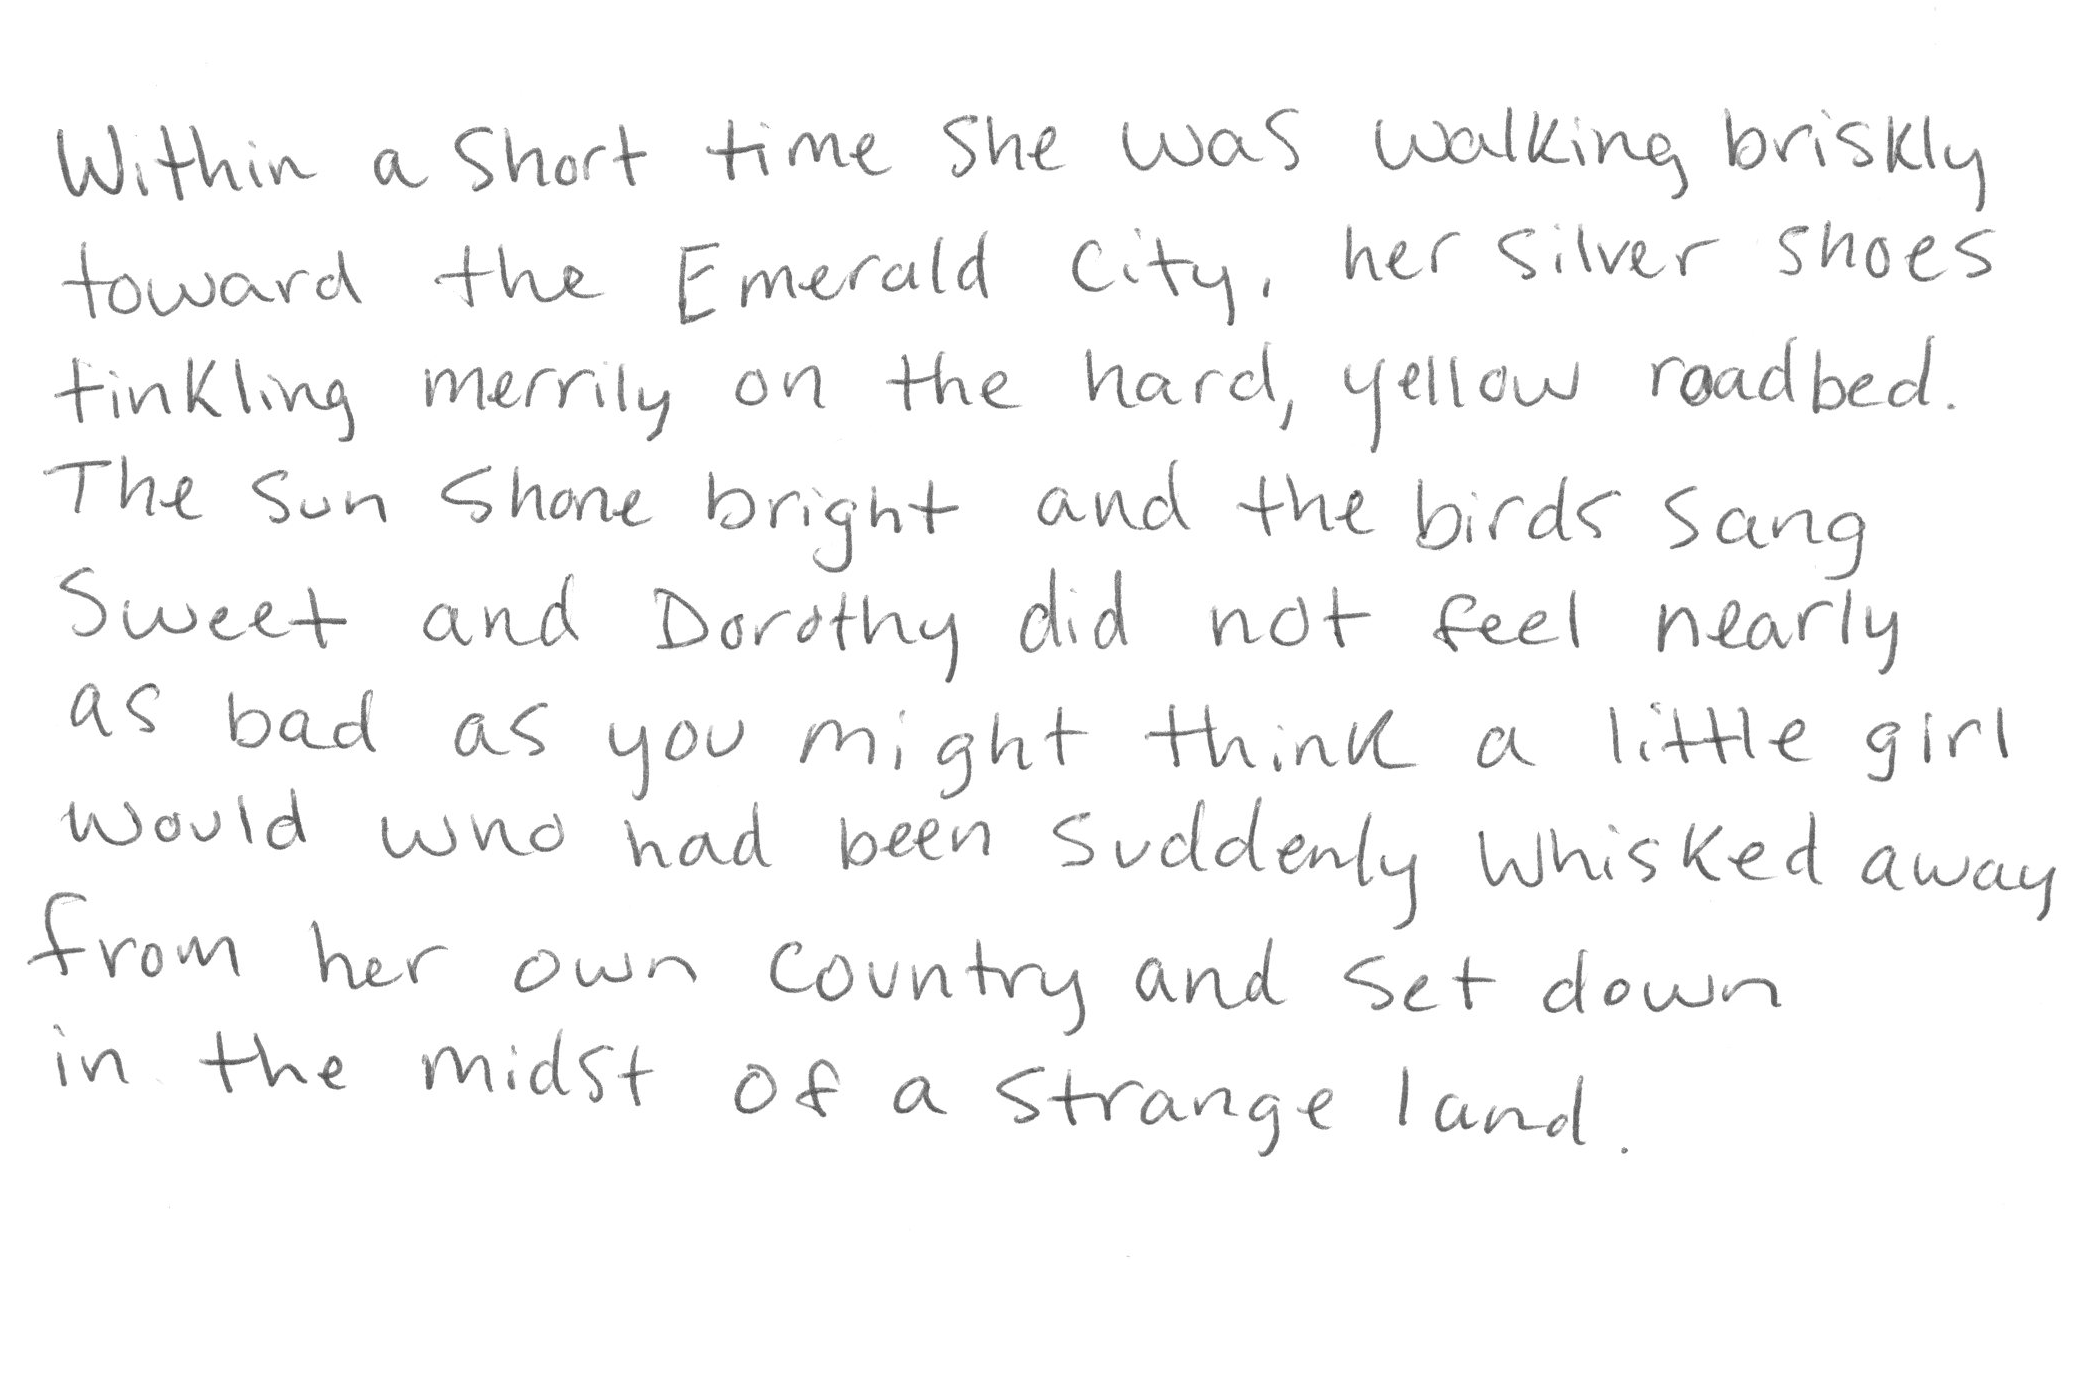 Within a short time she was walking briskly
toward the Emerald City, her silver shoes
tinkling merrily on the hard, yellow roadbed.
The sun shone bright and the birds sang
sweet and Dorothy did not feel nearly
as bad as you might think a little girl
would who had been suddenly whisked away
from her own country and set down
in the midst of a strange land.